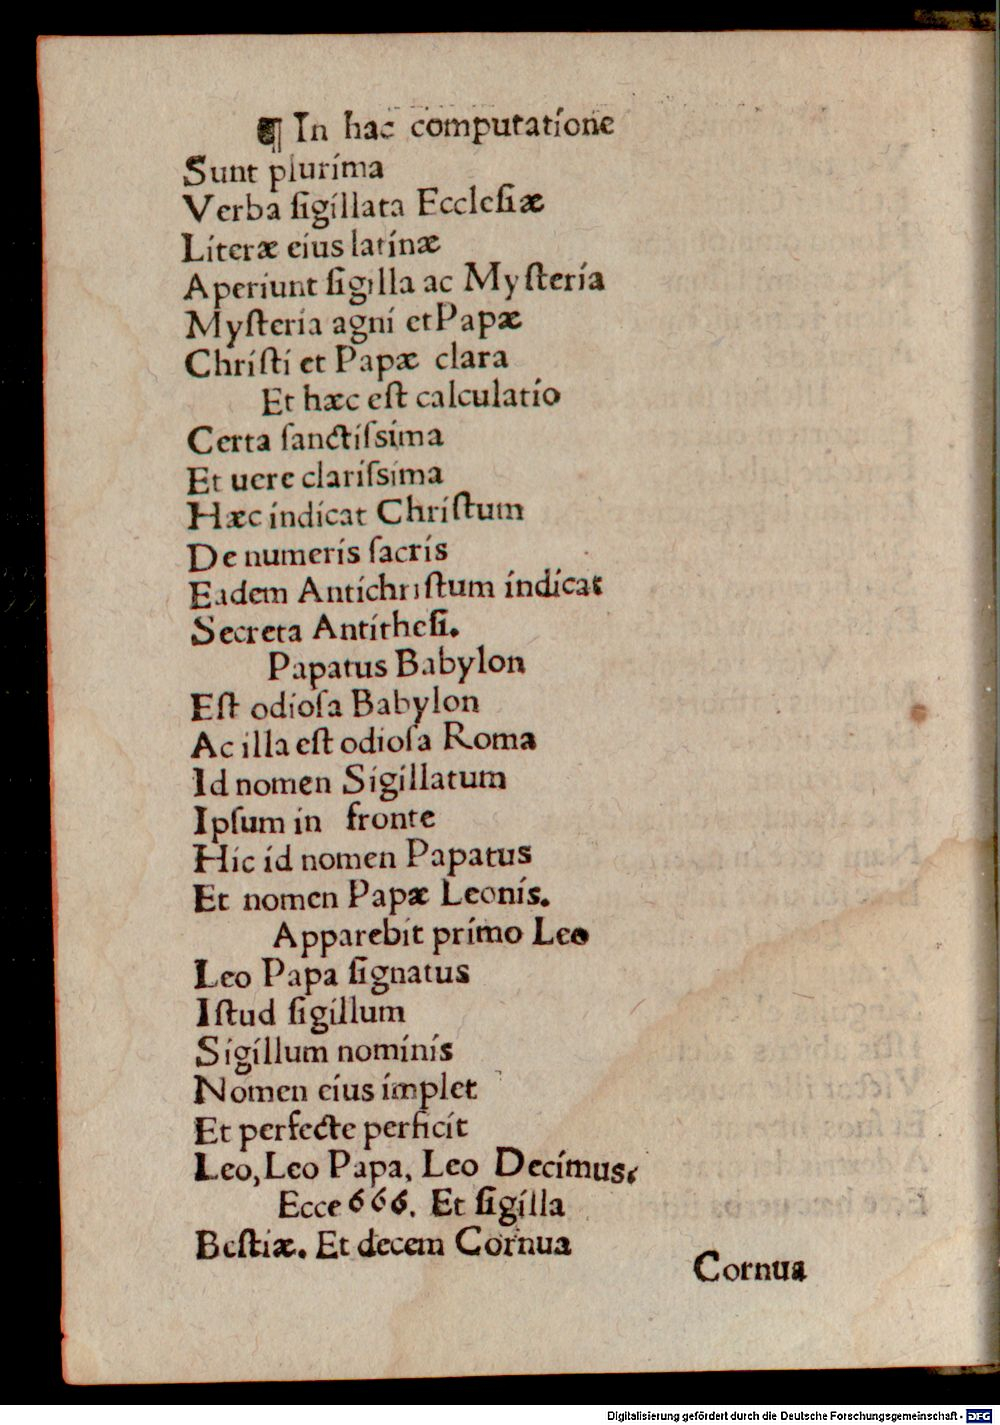 ¶ In hac computatione
Sunt plurima
Verba ſigillata Eccleſiæ
Literæ eius latinæ
Aperiunt ſigilla ac Myſteria
Myſteria agni et Papæ
Chriſti et Papæ clara
Et hæc eſt calculatio
Certa ſanctiſsima
Et uere clariſsima
Hæc indicat Chriſtum
De numeris ſacris
Eadem Antichriſtum indicat
Secreta Antitheſi.
Papatus Babylon
Eſt odioſa Babylon
Ac illa eſt odioſa Roma
Id nomen Sigillatum
Ipſum in fronte
Hic id nomen Papatus
Et nomen Papæ Leonis.
Apparebit primo Leo
Leo Papa ſignatus
Iſtud ſigillum
Sigillum nominis
Nomen eius implet
Et perfecte perficit
Leo, Leo Papa, Leo Decimus.
Ecce 666. Et ſigilla
Beſtiæ. Et decem Cornua
Cornua
Digitalisierung gefördert durch die Deutsche Forschungsgemeinschaft - DFG